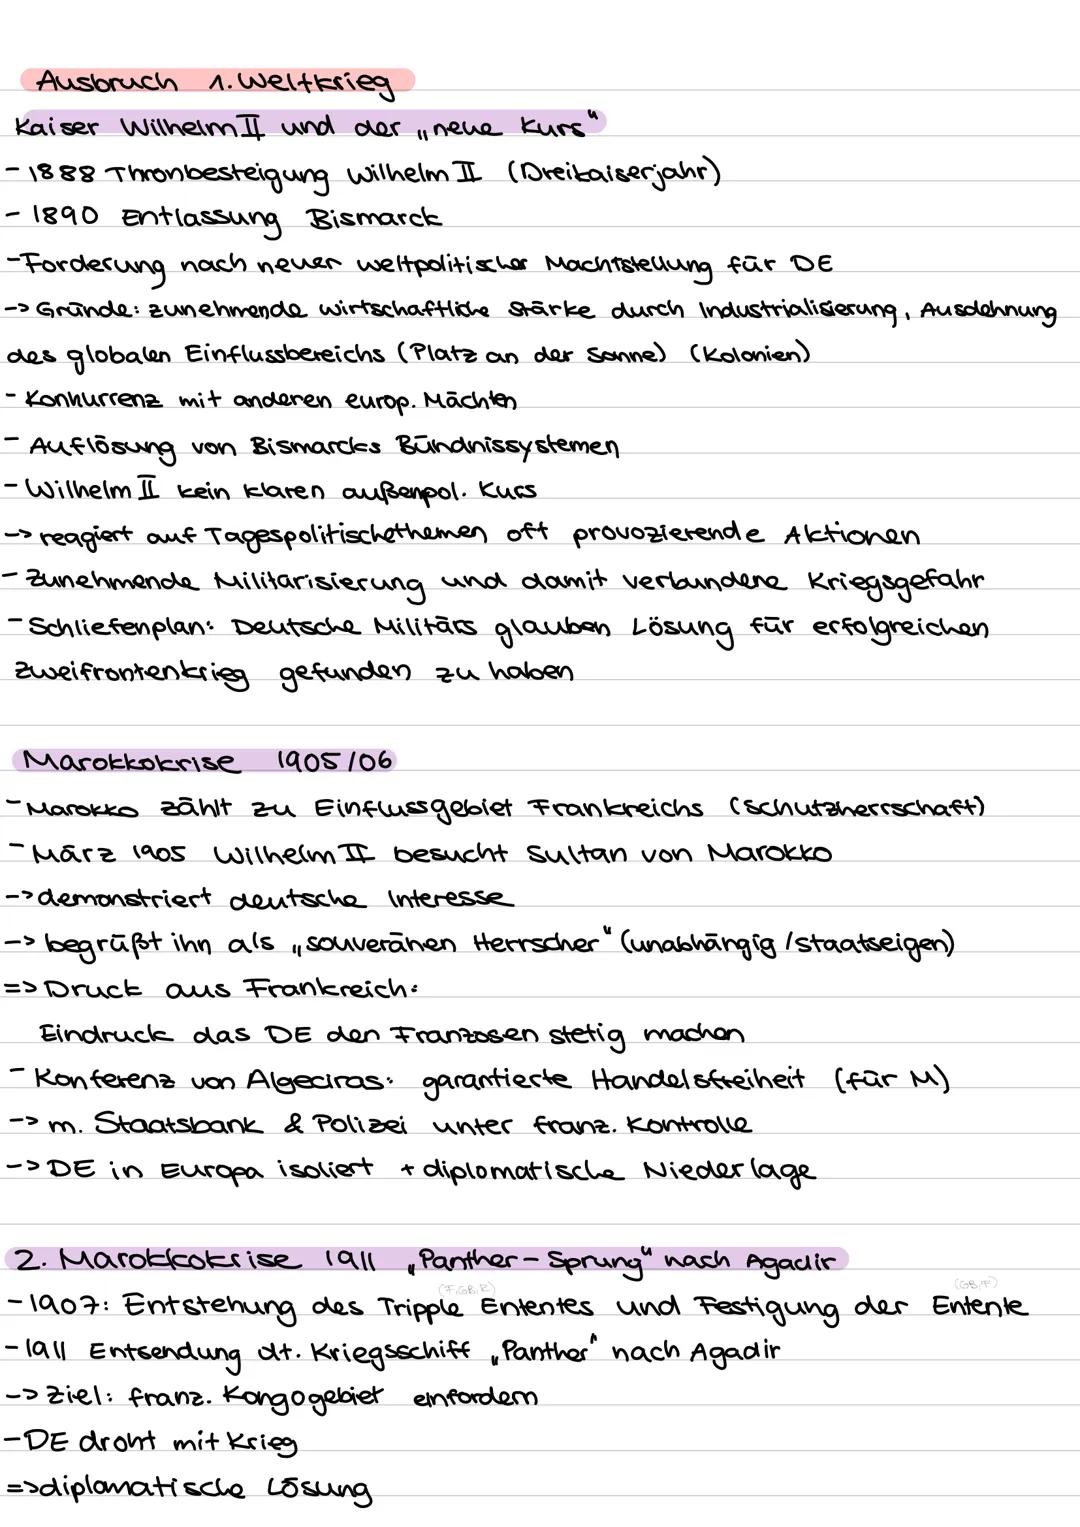 Ausbruch 1. Weltkrieg
Kaiser Wilhelm II und der „neue Kurs"
- 1888 Thronbesteigung Wilhelm II (Dreikaiserjahr)
- 1890 Entlassung Bismarck
- Forderung nach neuer weltpolitischer Machtstellung für DE
-> Gründe: zunehmende wirtschaftliche Stärke durch Industrialisierung, Ausdehnung
des globalen Einflussbereichs (Platz an der Sonne) (Kolonien)
- Konkurrenz mit anderen europ. Mächten
- Auflösung von Bismarcks Bündnissystemen
- Wilhelm II kein klaren außenpol. Kurs
-> reagiert auf Tagespolitischethemen oft provozierende Aktionen
- Zunehmende Militarisierung und damit verbundene Kriegsgefahr
- Schliefenplan: Deutsche Militärs glauben Lösung für erfolgreichen
Zweifrontenkrieg gefunden zu haben
Marokkokrise 1905/06
- Marokko zählt zu Einflussgebiet Frankreichs (Schutzherrschaft)
- März 1905 Wilhelm II besucht Sultan von Marokko
-> demonstriert deutsche Interesse
-> begrüßt ihn als „souveränen Herrscher" (unabhängig / staatseigen)
=> Druck aus Frankreich:
Eindruck das DE den Franzosen stetig machen
- Konferenz von Algeciras: garantierte Handelsfreiheit (für M)
-> m. Staatsbank & Polizei unter franz. Kontrolle
-> DE in Europa isoliert + diplomatische Niederlage
2. Marokkokrise 1911 „Panther-Sprung" nach Agadir
(F,GB,R) (GB,F)
- 1907: Entstehung des Tripple Ententes und Festigung der Entente
- 1911 Entsendung dt. Kriegsschiff „Panther" nach Agadir
-> Ziel: franz. Kongogebiet einfordern
- DE droht mit Krieg
=> diplomatische Lösung